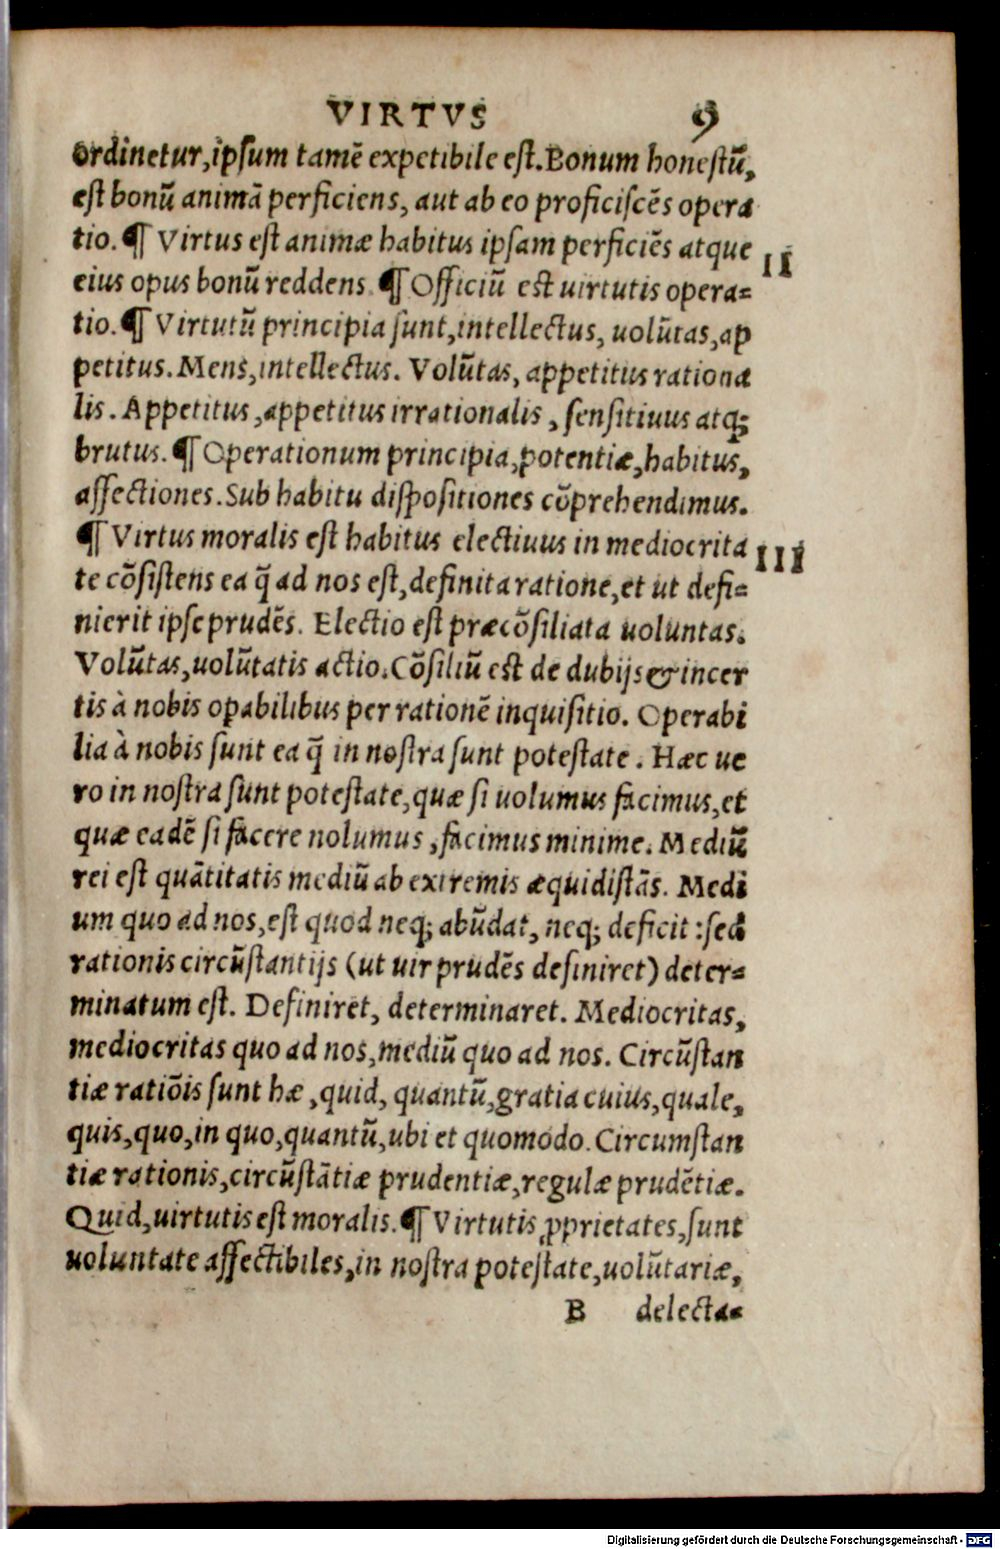 VIRTVS 9
ordinetur,ipsum tamē expetibile est.Bonum honestū,
est bonū animā perficiens, aut ab eo proficiscēs opera
tio.¶ Virtus est animæ habitus ipsam perficiēs atque
II
eius opus bonū reddens.¶Officiū est uirtutis opera=
tio.¶ Virtutū principia sunt,intellectus, uolūtas,ap
petitus.Mens,intellectus. Volūtas, appetitus rationa
lis. Appetitus,appetitus irrationalis, sensitiuus atq;
brutus.¶Operationum principia,potentiæ,habitus,
affectiones.Sub habitu dispositiones cōprehendimus.
¶ Virtus moralis est habitus electiuus in mediocrita
III
te cōsistens ea q̄ ad nos est,definita ratione,et ut defi=
nierit ipse prudēs. Electio est præcōsiliata uoluntas.
Volūtas,uolūtatis actio.Cōsiliū est de dubijs & incer
tis à nobis opabilibus per rationē inquisitio. Operabi
lia à nobis sunt ea q̄ in nostra sunt potestate. Hæc ue
ro in nostra sunt potestate,quæ si uolumus facimus,et
quæ eadē si facere nolumus,facimus minime. Mediū
rei est quātitatis mediū ab extremis æquidistās. Medi
um quo ad nos,est quod neq; abūdat, neq; deficit:sed
rationis circūstantijs (ut uir prudēs definiret) deter=
minatum est. Definiret, determinaret. Mediocritas,
mediocritas quo ad nos,mediū quo ad nos. Circūstan
tiæ ratiōis sunt hæ,quid, quantū,gratia cuius,quale,
quis,quo,in quo,quantū,ubi et quomodo.Circumstan
tiæ rationis,circūstātiæ prudentiæ,regulæ prudētiæ.
Quid,uirtutis est moralis.¶ Virtutis ꝓprietates,sunt
uoluntate affectibiles,in nostra potestate,uolūtariæ,
B delecta=
Digitalisierung gefördert durch die Deutsche Forschungsgemeinschaft - DFG